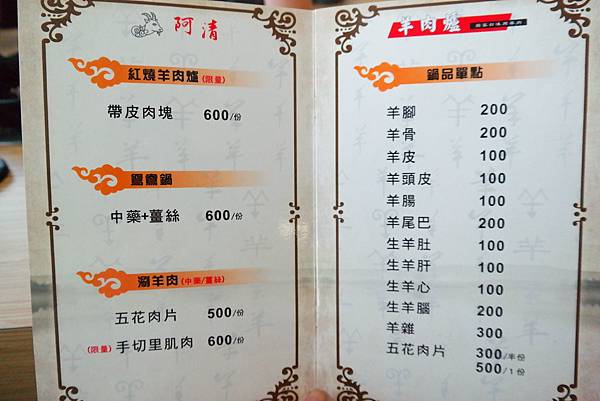 阿清
紅燒羊肉爐(限量)
帶皮肉塊 600/份
鴛鴦鍋
中藥+薑絲 600/份
涮羊肉(中藥/薑絲)
五花肉片 500/份
(限量)手切里肌肉 600/份
羊肉爐
鍋品單點
羊腳 200
羊骨 200
羊皮 100
羊頭皮 100
羊腸 100
羊尾巴 200
生羊肚 100
生羊肝 100
生羊心 100
生羊腦 200
羊雜 300
五花肉片 300/半份
500/1份